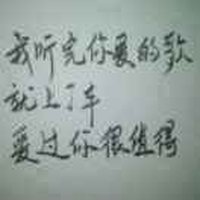 我听完你爱的歌
就上了车
爱过你很值得